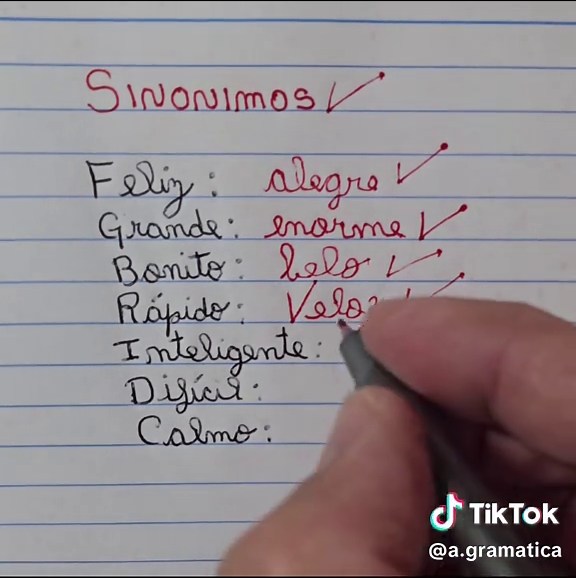 SINONIMOS
Feliz: alegre
Grande: enorme
Bonito: belo
Rápido: Veloz
Inteligente:
Difícil:
Calmo:
TikTok
@a.gramatica